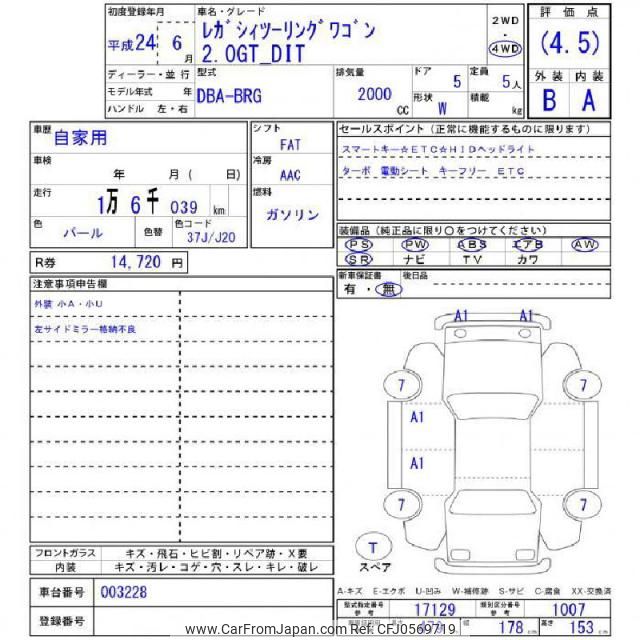 初度登録年月 車名・グレード 2WD 評価点
平成24 6月 ﾚｶﾞｼｨﾂｰﾘﾝｸﾞﾜｺﾞﾝ ・ (4.5)
2.0GT_DIT 4WD
ディーラー・並行 型式 排気量 ドア 定員 外装 内装
モデル年式 年 DBA-BRG 2000 5 5人 B A
ハンドル 左・右 CC 形状 W 積載 kg
車歴 自家用 シフト FAT セールスポイント(正常に機能するものに限ります)
車検 年 月( 日) 冷房 AAC スマートキー☆ETC☆HIDヘッドライト
走行 1万6千039km 燃料 ガソリン ターボ 電動シート キーフリー ETC
色 パール 色替 色コード 37J/J20 装備品(純正品に限り○をつけてください)
PS PW ABS エアB AW
R券 14,720円 SR ナビ TV カワ
新車保証書 有・無 後日品
注意事項申告欄
外装 小A・小U
左サイドミラー格納不良
A1 A1
7 7
A1
A1
7 7
T
スペア
フロントガラス キズ・飛石・ヒビ割・リペア跡・X要
内装 キズ・汚レ・コゲ・穴・スレ・キレ・破レ
車台番号 003228
登録番号
A-キズ E-エクボ U-凹み W-補修跡 S-サビ C-腐食 XX-交換済
型式指定番号 参考 17129 類別区分番号 参考 1007
178cm 高さ 153cm
www.CarFromJapan.com Ref:CFJ0569719